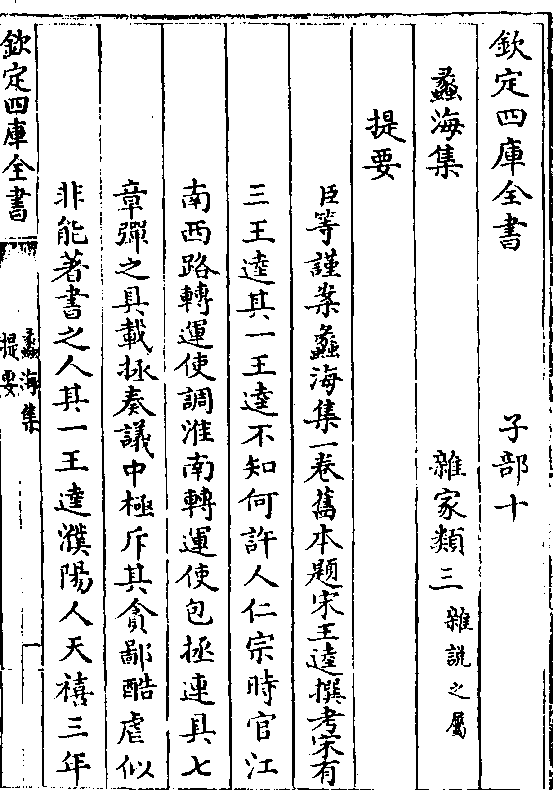 欽定四庫全書 子部十
蠡海集 雜家類三 雜說之屬
提要
臣等謹案蠡海集一卷舊本題宋王逵撰考宋有
三王逵其一王逵不知何許人仁宗時官江
南西路轉運使調淮南轉運使包拯連具七
章彈之具載拯奏議中極斥其貪鄙酷虐似
非能著書之人其一王逵濮陽人天禧三年
欽定四庫全書
蠡海集
提要
一